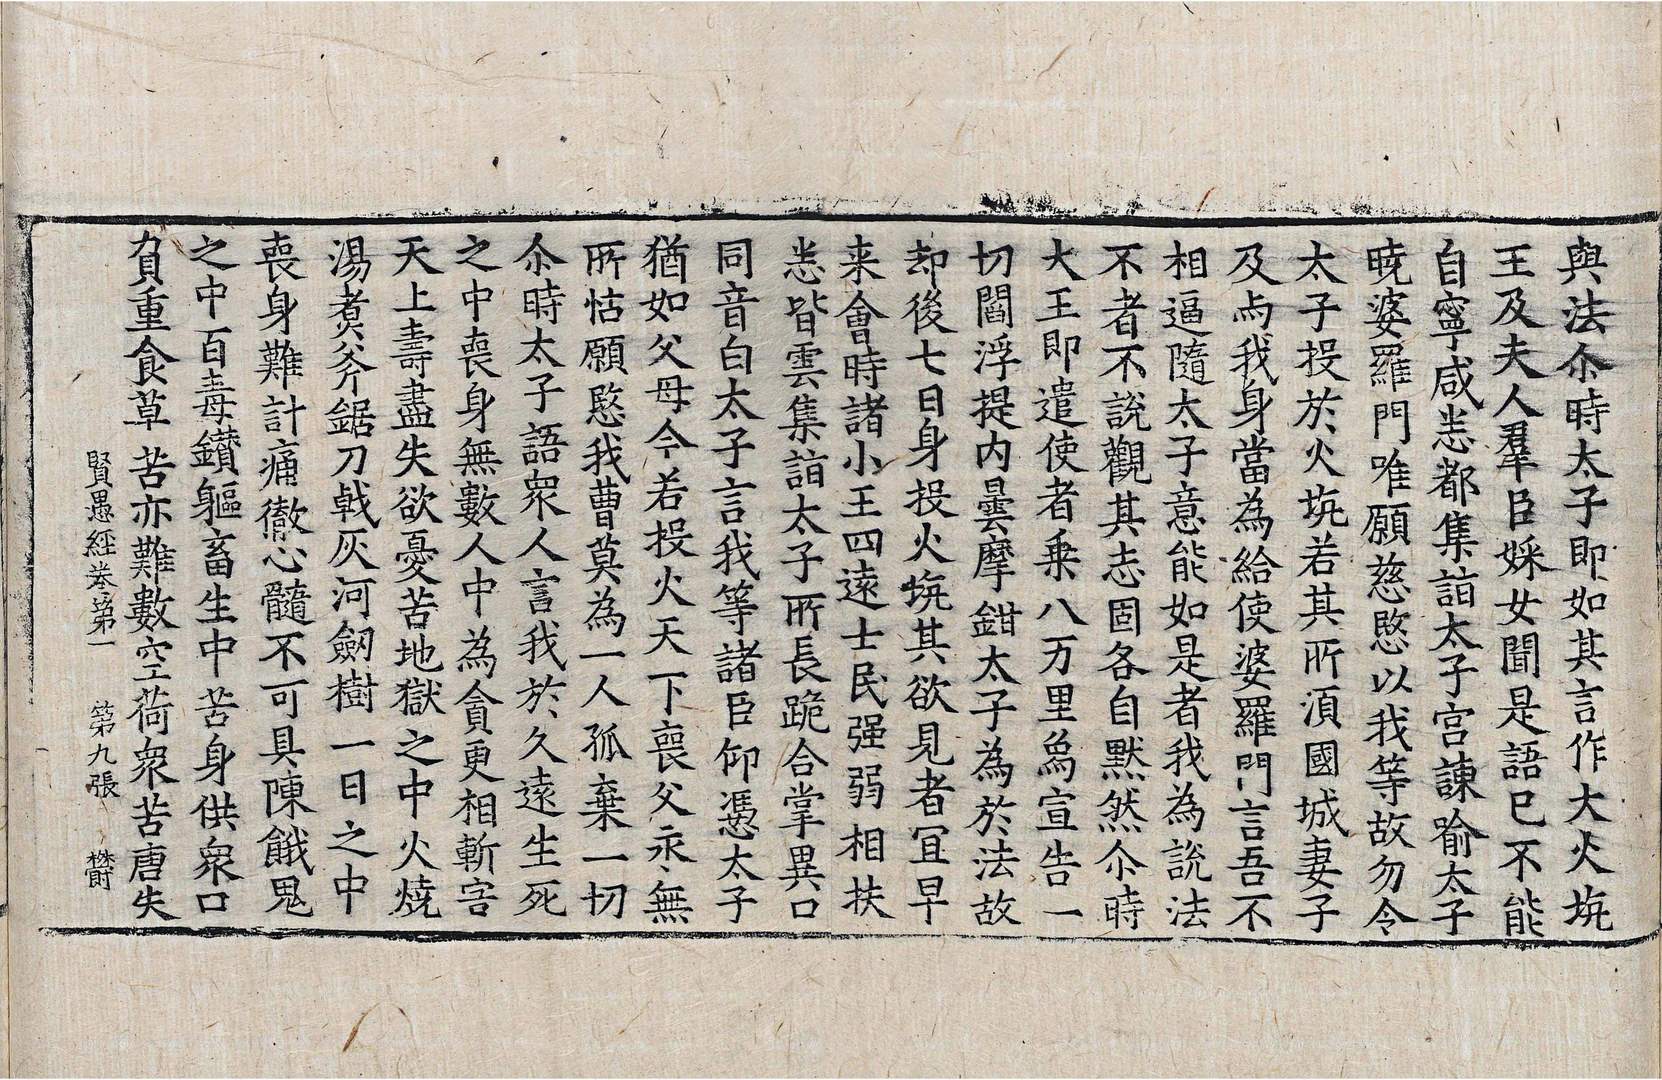 與法尒時太子即如其言作大火坑
王及夫人羣臣婇女聞是語已不能
自寧咸恚都集詣太子宮諫喻太子
曉婆羅門唯願慈愍以我等故勿令
太子投於火坑若其所須國城妻子
及与我身當為給使婆羅門言吾不
相逼隨太子意能如是者我為說法
不者不說觀其志固各自默然尒時
大王即遣使者乗八万里烏宣告一
切閻浮提內曇摩鉗太子為於法故
却後七日身投火坑其欲見者冝早
来會時諸小王四遠士民强弱相扶
恚皆雲集詣太子所長跪合掌異口
同音白太子言我等諸臣仰憑太子
猶如父母今若投火天下喪父永無
所怙願愍我曹莫為一人孤棄一切
尒時太子語衆人言我於久遠生死
之中喪身無數人中為貪更相斬害
天上壽盡失欲憂苦地獄之中火燒
湯煑斧鋸刀戟灰河劒樹一日之中
喪身難計痛徹心髓不可具陳餓鬼
之中百毒鑽軀畜生中苦身供衆口
負重食草苦亦難數空荷衆苦唐失
賢愚經卷第一 第九張 欝